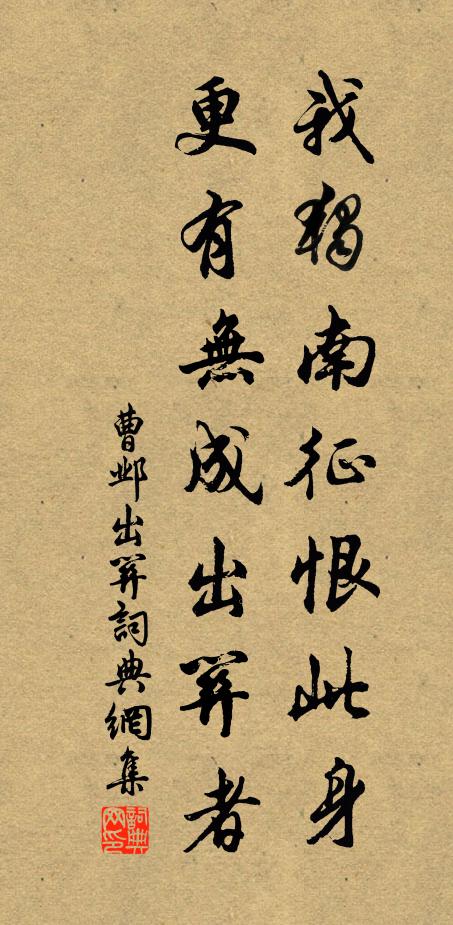 我獨南征恨此身
更有無成出關者
曹邺出關詞典網集
詞典
网印